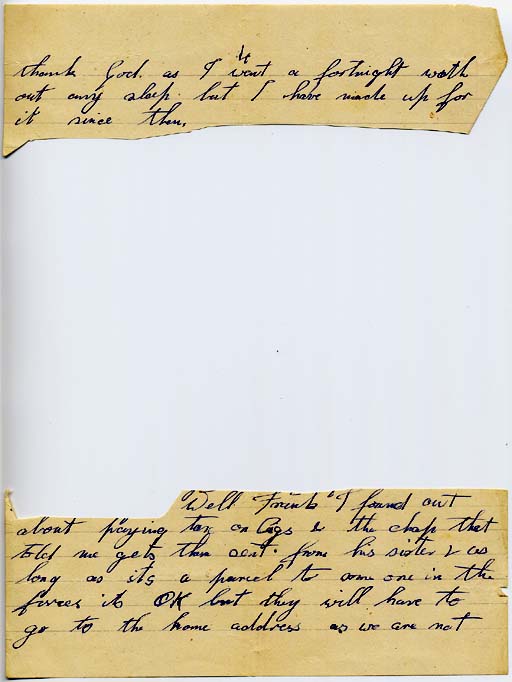 thank God. as I went a fortnight with
out any sleep. but I have made up for
it since then.
Well Frank I found out
about paying tax on Cigs & the chap that
told me gets them sent. from his sister & as
long as its a parcel to some one in the
forces its OK but they will have to
go to the home address as we are not